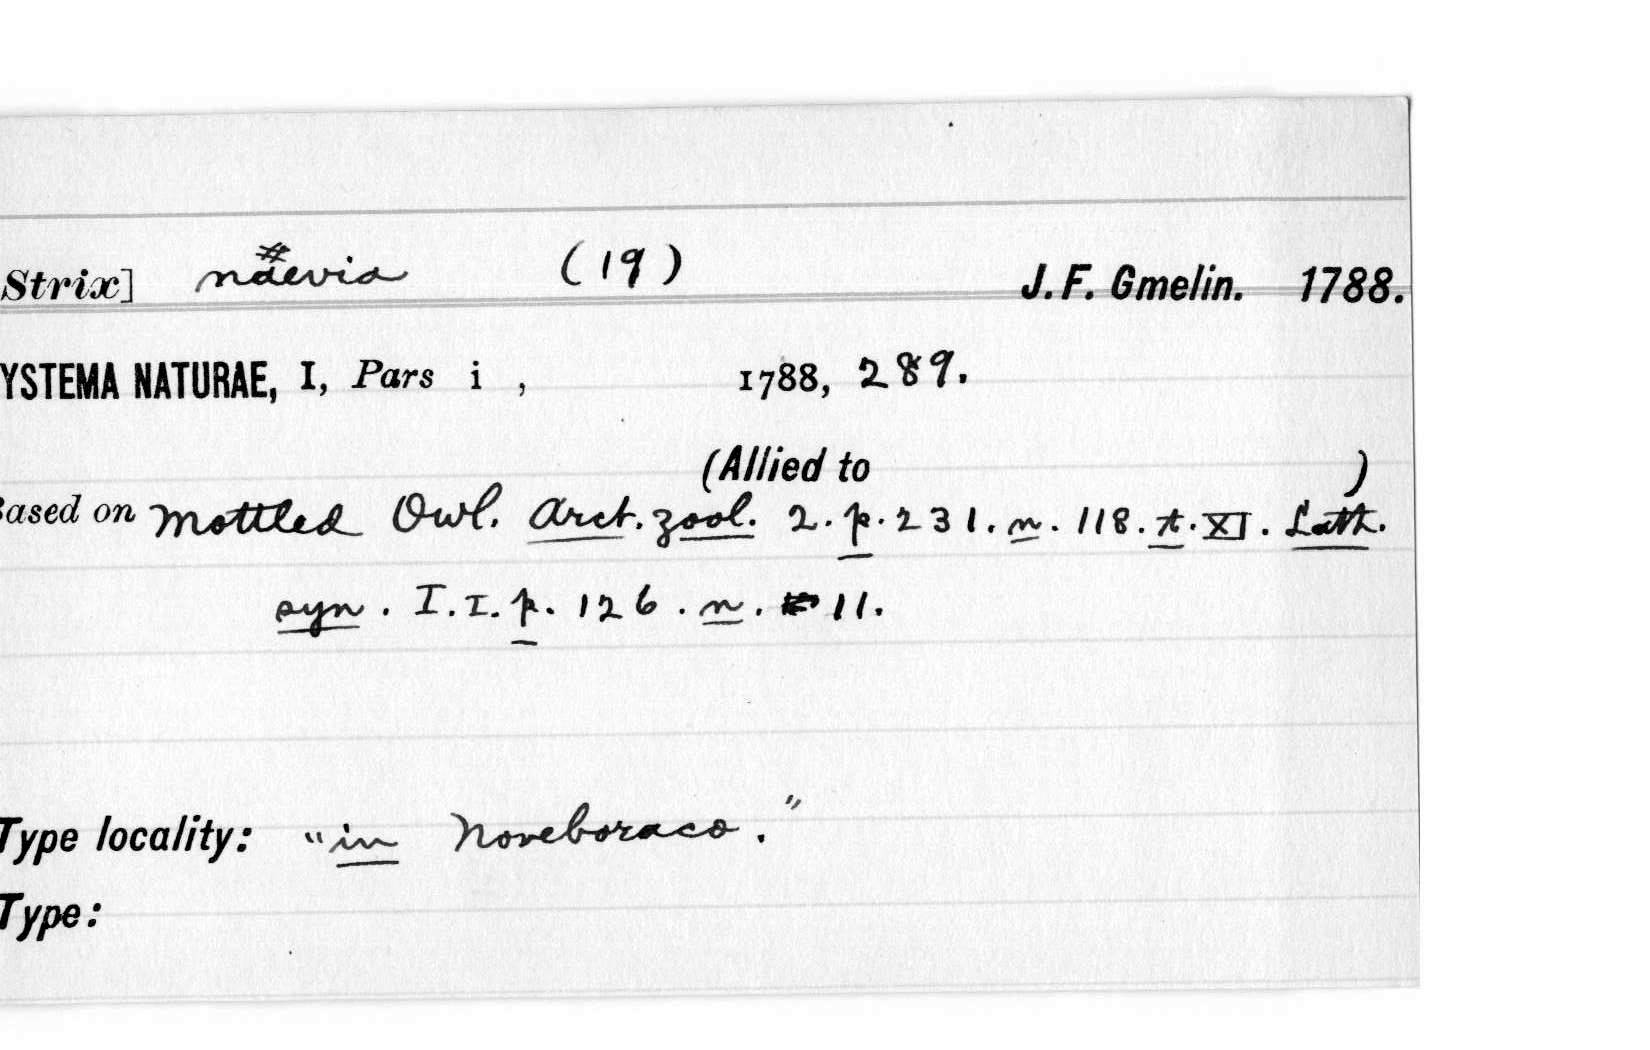 Strix] naevia (19) J. F. Gmelin. 1788.
YSTEMA NATURAE, I, Pars i , 1788, 289.
(Allied to )
Based on Mottled Owl. Arct. zool. 2. p. 231. n. 118. t. XI. Lath.
syn. I. I. p. 126. n. 11.
Type locality: "in Noveboraco."
Type: